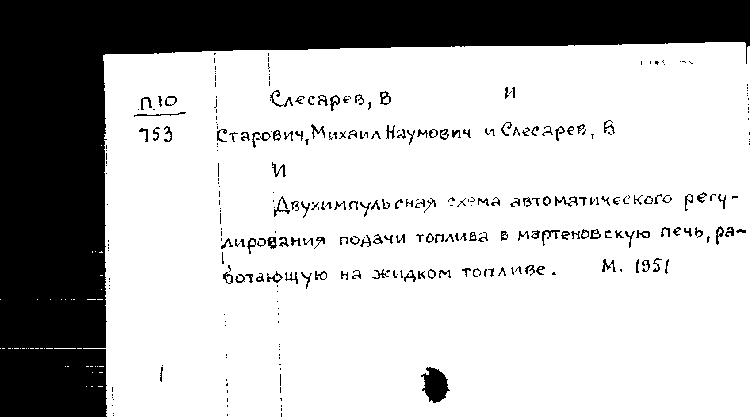 П.10 Слесарев, В И
753 Старович, Михаил Наумович и Слесарев, В
И
Двухимпульсная схема автоматического регу-
лирования подачи топлива в мартеновскую печь, ра-
ботающую на жидком топливе. М. 1951
1